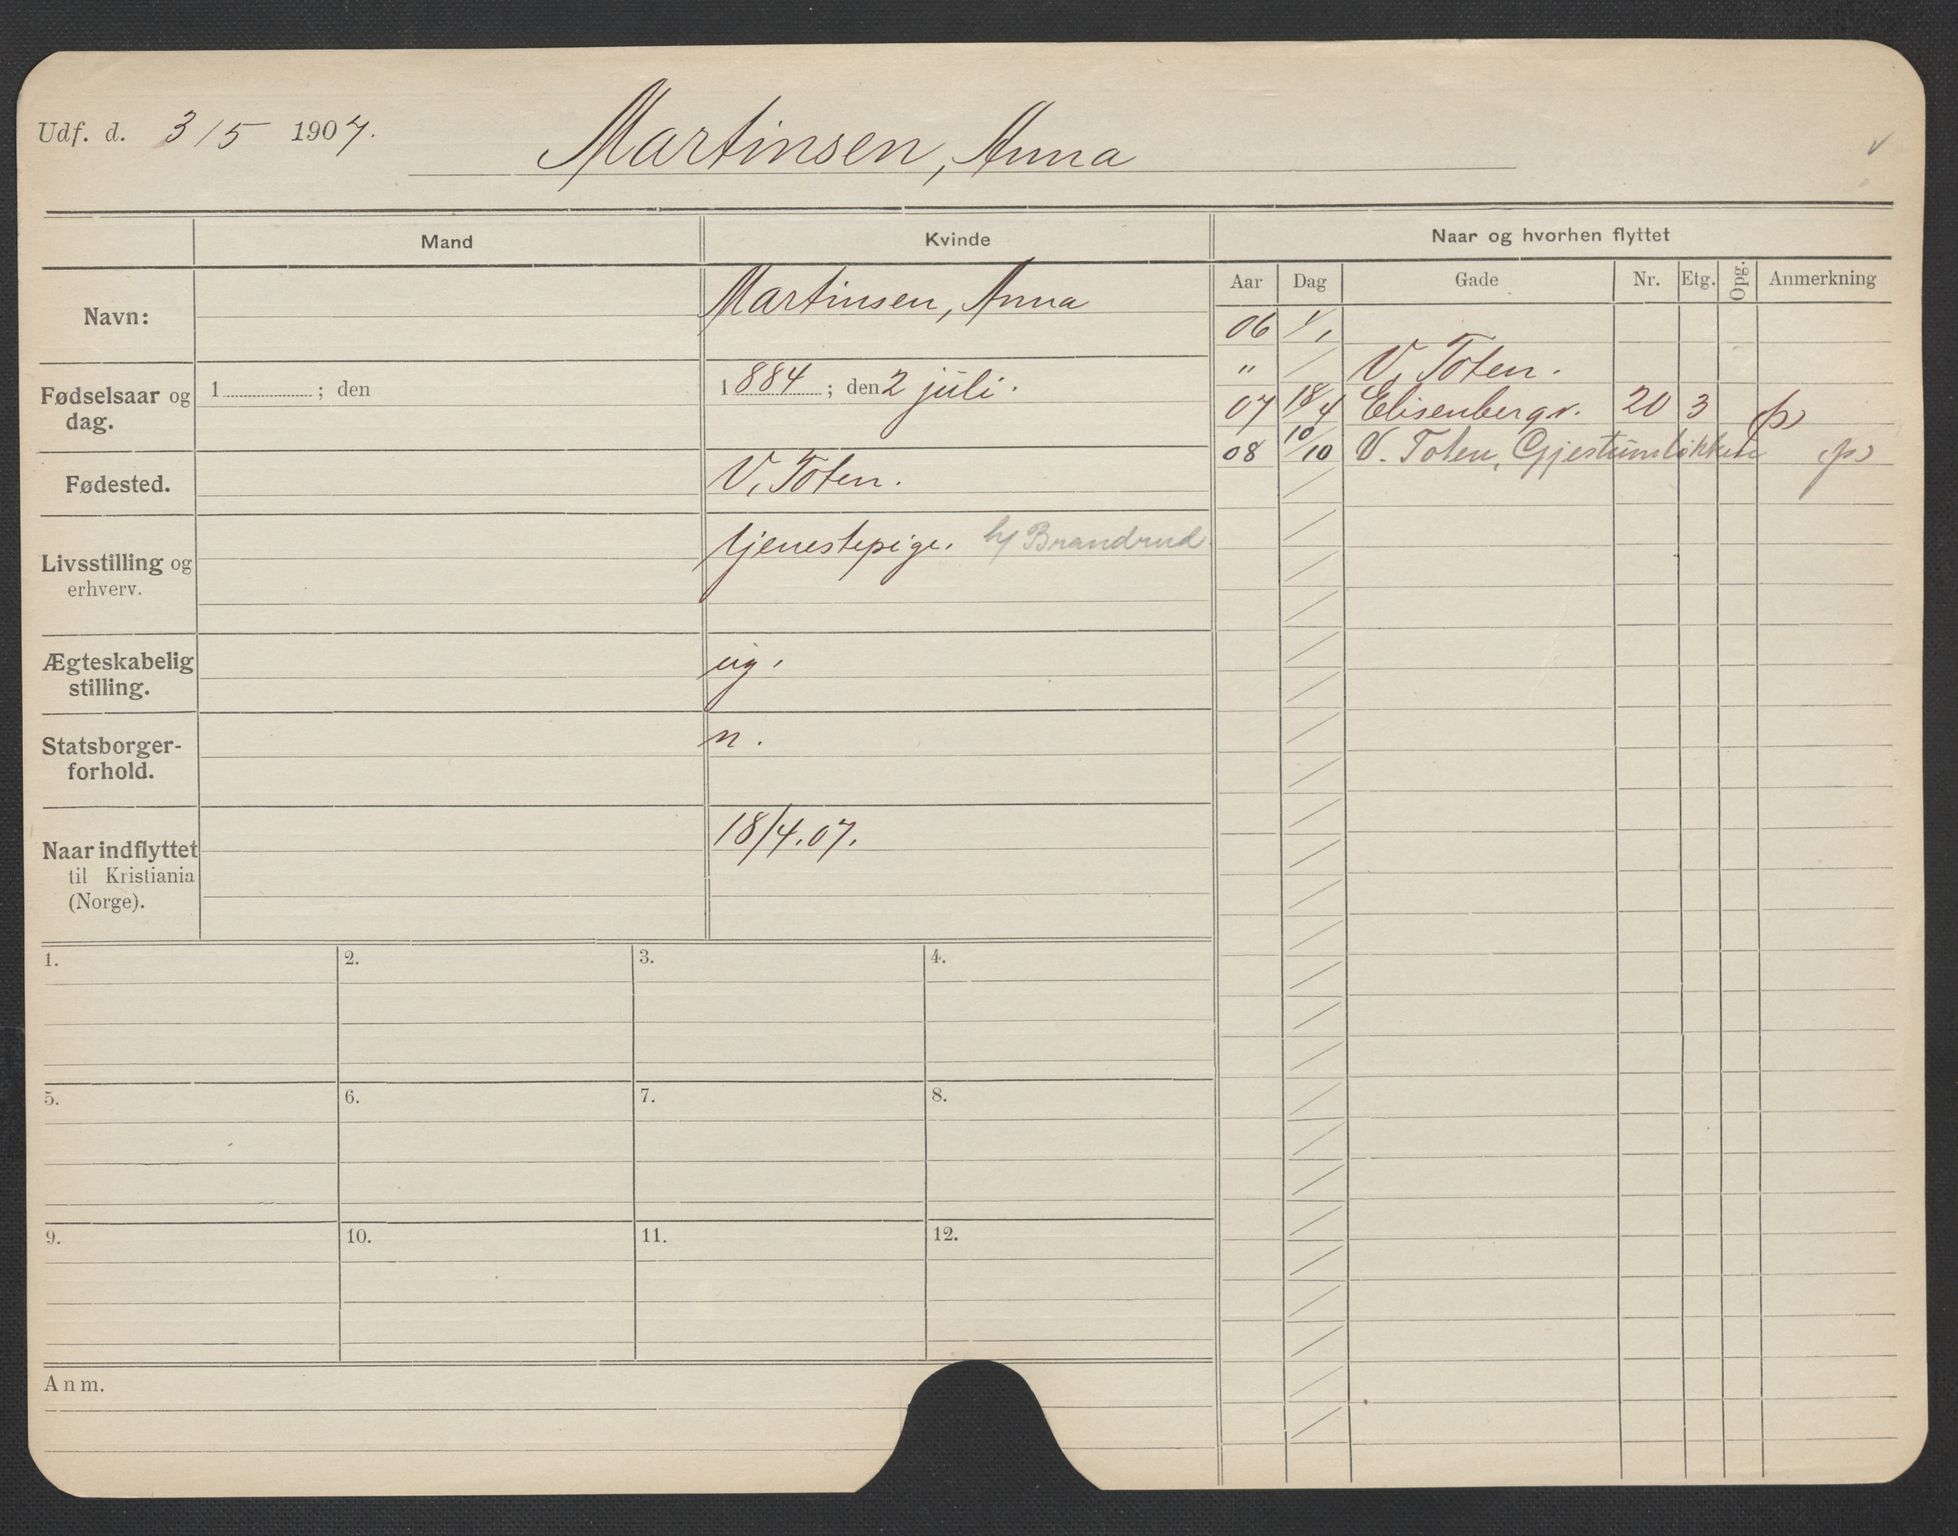 Udf. d. 3/5 1907.
Martinsen, Anna
Mand
Kvinde
Naar og hvorhen flyttet
Aar Dag Gade Nr. Etg. Opg. Anmerkning
Navn:
Martinsen, Anna
Fødselsaar og dag.
1 ; den
1884 ; den 2 juli.
Fødested.
V. Toten.
Livsstilling og
erhverv.
tjenestepige. h/ Brandrud
Ægteskabelig
stilling.
ug.
Statsborger-
forhold.
n.
Naar indflyttet
til Kristiania
(Norge).
18/4.07.
06 1/1
" / V. Toten.
07 18/4 Elisenbergv. 20 3 ps
08 10/10 V. Toten, Gjestumløkken ps
1. 2. 3. 4.
5. 6. 7. 8.
9. 10. 11. 12.
Anm.